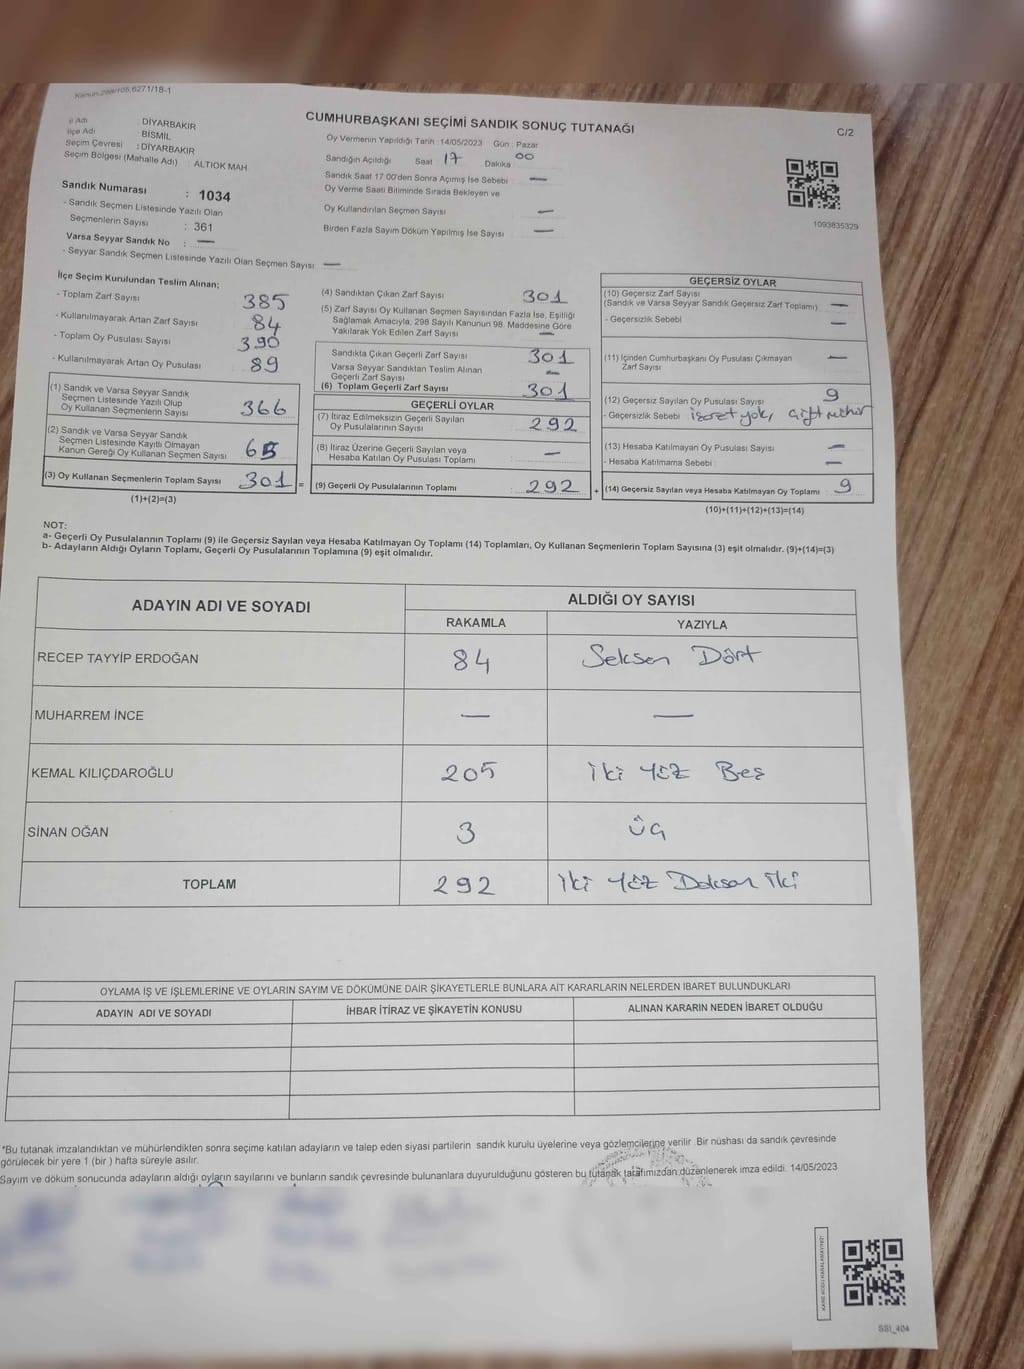 Kanun:298/105,6271/18-1
CUMHURBAŞKANI SEÇİMİ SANDIK SONUÇ TUTANAĞI
C/2
İl Adı : DİYARBAKIR
İlçe Adı BİSMİL
Seçim Çevresi : DİYARBAKIR
Seçim Bölgesi (Mahalle Adı) : ALTIOK MAH
Oy Vermenin Yapıldığı Tarih : 14/05/2023 Gün : Pazar
Sandığın Açıldığı Saat 17 Dakika 00
Sandık Saat 17:00'den Sonra Açımış İse Sebebi : —
Oy Verme Saati Bitiminde Sırada Bekleyen ve
Oy Kullandırılan Seçmen Sayısı —
Birden Fazla Sayım Döküm Yapılmış İse Sayısı : —
1093835329
Sandık Numarası : 1034
- Sandık Seçmen Listesinde Yazılı Olan
Seçmenlerin Sayısı : 361
Varsa Seyyar Sandık No : —
- Seyyar Sandık Seçmen Listesinde Yazılı Olan Seçmen Sayısı : —
İlçe Seçim Kurulundan Teslim Alınan;
- Toplam Zarf Sayısı 385
- Kullanılmayarak Artan Zarf Sayısı 84
- Toplam Oy Pusulası Sayısı 390
- Kullanılmayarak Artan Oy Pusulası 89
(1) Sandık ve Varsa Seyyar Sandık
Seçmen Listesinde Yazılı Olup
Oy Kullanan Seçmenlerin Sayısı 366
(2) Sandık ve Varsa Seyyar Sandık
Seçmen Listesinde Kayıtlı Olmayan
Kanun Gereği Oy Kullanan Seçmen Sayısı
(3) Oy Kullanan Seçmenlerin Toplam Sayısı 301 =
(1)+(2)=(3)
(4) Sandıktan Çıkan Zarf Sayısı 301
(5) Zarf Sayısı Oy Kullanan Seçmen Sayısından Fazla İse, Eşitliği
Sağlamak Amacıyla, 298 Sayılı Kanunun 98. Maddesine Göre
Yakılarak Yok Edilen Zarf Sayısı —
Sandıkta Çıkan Geçerli Zarf Sayısı 301
Varsa Seyyar Sandıktan Teslim Alınan
Geçerli Zarf Sayısı —
(6) Toplam Geçerli Zarf Sayısı 301
GEÇERLİ OYLAR
(7) İtiraz Edilmeksizin Geçerli Sayılan
Oy Pusulalarının Sayısı : 292
(8) İtiraz Üzerine Geçerli Sayılan veya
Hesaba Katılan Oy Pusulası Toplamı : —
(9) Geçerli Oy Pusulalarının Toplamı : 292 +
GEÇERSİZ OYLAR
(10) Geçersiz Zarf Sayısı
(Sandık ve Varsa Seyyar Sandık Geçersiz Zarf Toplamı) : —
- Geçersizlik Sebebi : —
(11) İçinden Cumhurbaşkanı Oy Pusulası Çıkmayan
Zarf Sayısı : —
(12) Geçersiz Sayılan Oy Pusulası Sayısı : 9
- Geçersizlik Sebebi : işaret yok, çift mühür
(13) Hesaba Katılmayan Oy Pusulası Sayısı : —
- Hesaba Katılmama Sebebi : —
(14) Geçersiz Sayılan veya Hesaba Katılmayan Oy Toplamı : 9
(10)+(11)+(12)+(13)=(14)
NOT:
a- Geçerli Oy Pusulalarının Toplamı (9) ile Geçersiz Sayılan veya Hesaba Katılmayan Oy Toplamı (14) Toplamları, Oy Kullanan Seçmenlerin Toplam Sayısına (3) eşit olmalıdır. (9)+(14)=(3)
b- Adayların Aldığı Oyların Toplamı, Geçerli Oy Pusulalarının Toplamına (9) eşit olmalıdır.
ADAYIN ADI VE SOYADI
ALDIĞI OY SAYISI
RAKAMLA YAZIYLA
RECEP TAYYİP ERDOĞAN 84 Seksen Dört
MUHARREM İNCE — —
KEMAL KILIÇDAROĞLU 205 İki Yüz Beş
SİNAN OĞAN 3 Üç
TOPLAM 292 İki Yüz Doksan İki
OYLAMA İŞ VE İŞLEMLERİNE VE OYLARIN SAYIM VE DÖKÜMÜNE DAİR ŞİKAYETLERLE BUNLARA AİT KARARLARIN NELERDEN İBARET BULUNDUKLARI
ADAYIN ADI VE SOYADI İHBAR İTİRAZ VE ŞİKAYETİN KONUSU ALINAN KARARIN NEDEN İBARET OLDUĞU
*Bu tutanak imzalandıktan ve mühürlendikten sonra seçime katılan adayların ve talep eden siyasi partilerin sandık kurulu üyelerine veya gözlemcilerine verilir. Bir nüshası da sandık çevresinde
görülecek bir yere 1 (bir ) hafta süreyle asılır.
Sayım ve döküm sonucunda adayların aldığı oyların sayılarını ve bunların sandık çevresinde bulunanlara duyurulduğunu gösteren bu tutanak tarafımızdan düzenlenerek imza edildi. 14/05/2023
KARE KODU KARALAMAYINIZ!
SSI_404